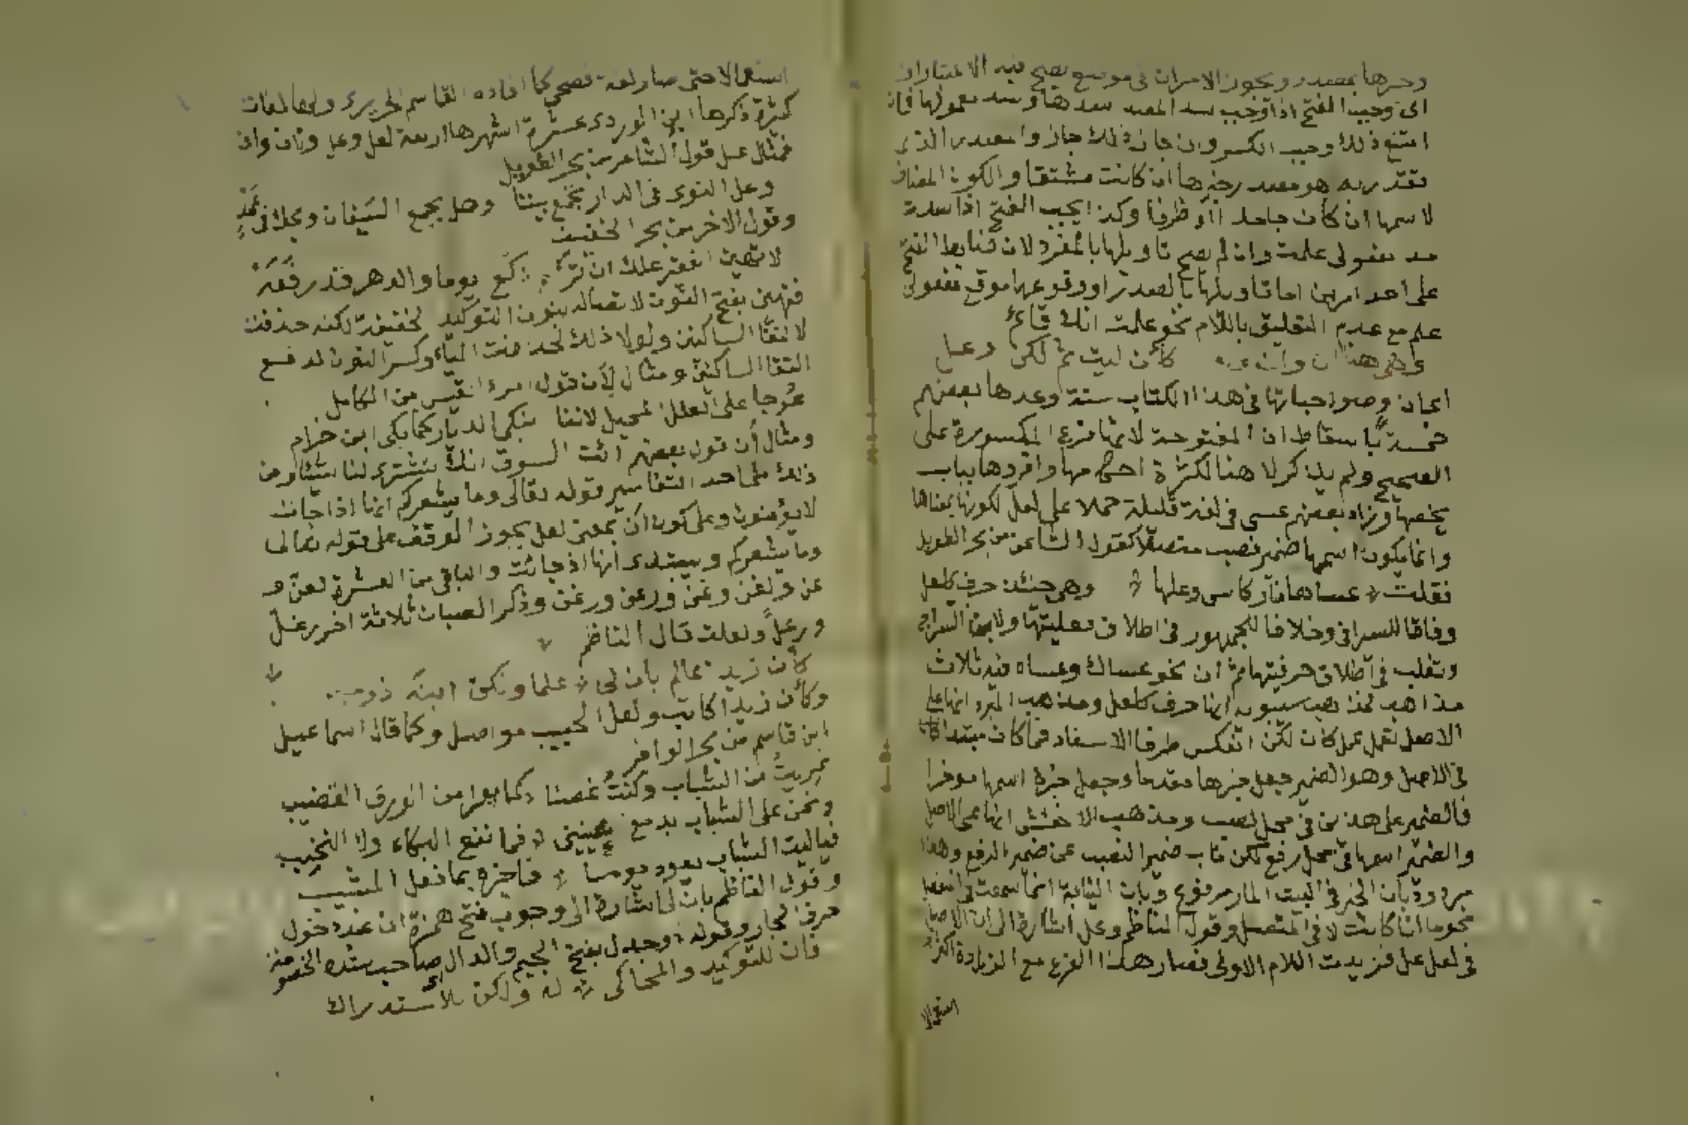 وخبرها بمصدر ويجوز الامران في موضع يصح فيه الاعتباران
اى وجب الفتح اذا وجب سد المصدر مسدها ومسد معمولها فان
امتنع ذلك وجب الكسر وان جاز ذلك جاز والمصدر الذى
تقدر به هو مصدر خبرها ان كانت مشتقا والكون المضاف
لاسمها ان كان جامدا او ظرفا وكذا يجب الفتح اذا سدت
مسد مفعولى علمت وان لم يصح تاويلها بالمفرد لان ضابط الفتح
على احد امرين اما تاويلها بالمصدر او وقوعها موقع مفعولى
علم مع عدم التعليق باللام نحو علمت انك قائم
وهى هذا ان وان كأن ليت ثم لكن وعل
اعلم ان وصواحباتها في هذا الكتاب ستة وعدها بعضهم
خمسة باسقاط ان المفتوحة لانها فرع المكسورة على
الصحيح ولم يذكر لا هنا لكثرة احكامها وافردها بباب
يخصها وزاد بعضهم عسى في لغة قليلة حملا على لعل لكونها بمعناها
وانما يكون اسمها ضمير نصب متصلا كقول الشاعر من بحر الطويل
فقلت عساها نار كاس وعلها وهى حينئذ حرف كلعل
وفاقا للسيرافى وخلافا للجمهور فى اطلاق فعليتها ولابن السراج
وتغلب فى اطلاق حرفيتها ثم ان نحو عساك وعساه فيه ثلاث
مذاهب فمذهب سيبويه انها حرف كلعل ومذهب المبرد انها على
الاصل تعمل عمل كان لكن انعكس طرفا الاسناد فما كان مبتدا
فى الاصل وهو الضمير جعل خبرها مقدما وجعل خبره اسمها موخرا
فالضمير على هذين فى محل نصب ومذهب الاخفش انها على الاصل
والضمير اسمها فى محل رفع لكن ناب ضمير النصب عن ضمير الرفع وهذا
مردود بان الخبر فى البيت المار مرفوع وبان النيابة انما سمعت فى المنفصل
نحو ما انا كانت لا فى المتصل وقول الناظم وعل اشارة الى ان الاصل
فى لعل عل فزيدت اللام الاولى فصار هذا الفرع مع الزيادة اكثر
استعمالا
استعمالا حتى صار لغة فصحى كما افاده القاسم الحريرى ولها لغات
كثيرة ذكرها ابن الوردى عشرة اشهرها اربعة لعل وعل ولان وان
فمثال عل قول الشاعر من بحر الطويل
وعل النوى فى الدار يجمع بيننا وهل يجمع السيفان ويحك فى غمد
وقول الاخر من بحر الخفيف
لا تهين الفقير علك ان تركع يوما والدهر قد رفعه
فتهين بفتح النون لاتصاله بنون التوكيد الخفيفة لكنه حذفت
لالتقا الساكنين ولولا ذلك لحذفت الياء وكسر النون لدفع
التقا الساكنين ومثال لأن قول امرء القيس من الكامل
عوجا على الطلل المحيل لاننا نبكى الديار كما بكى ابن خزام
ومثال أن قول بعضهم ائت السوق انك تشترى لنا شيئا ومن
ذلك على احد التفاسير قوله تعالى وما يشعركم انها اذا جات
لا يؤمنون وعلى كون ان بمعنى لعل يجوز الوقف على قوله تعالى
وما يشعركم ويبتدى انها اذا جائت والباقى من العشرة لعن و
عن ولغن وغن ورعن ورغن وذكر الصبان ثلاثة اخر رعل
ورعل ولعلت قال الناظم
كأن زيدا عالم بان لى علما ولكن ابنه ذو
وكأن زيدا كاتب ولعل الحبيب مواصل وكما قال اسماعيل
ابن قاسم من بحر الوافر
عريت من الشباب وكنت غصنا كما يعرا من الورق القضيب
ونحن على الشباب بدمع عينى فما نفع البكاء ولا النحيب
فياليت الشباب يعود يوما فاخبره بما فعل المشيب
وقول الناظم بان لى اشارة الى وجوب فتح همزة ان عند دخول
حرف الجار وقوله بفتح الجيم والدال صاحب شدة الخصومة
فان للتوكيد والمحاكى له ولكن للاستدراك